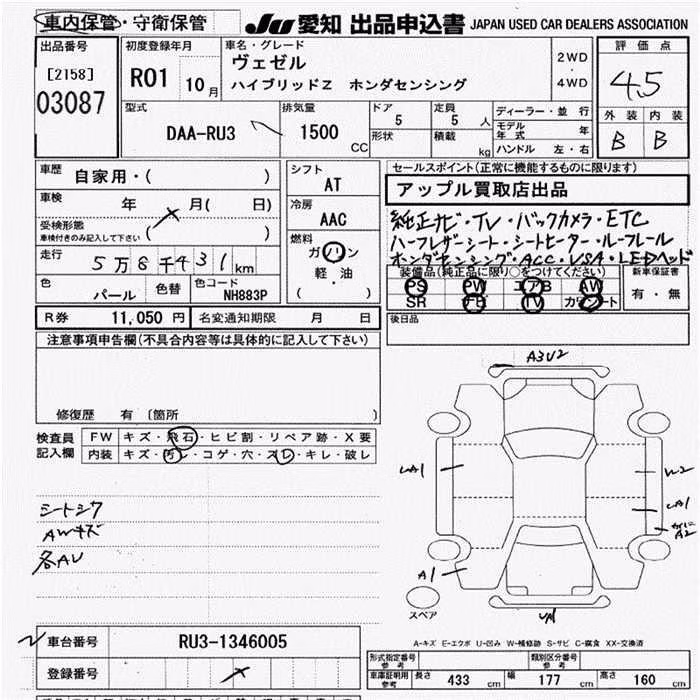 車内保管・守衛保管
JU 愛知 出品申込書 JAPAN USED CAR DEALERS ASSOCIATION
出品番号
[2158]
03087
初度登録年月
R01 10月
車名・グレード
ヴェゼル
ハイブリッドZ ホンダセンシング
2WD
・
4WD
評価点
4.5
外装 内装
B B
型式
DAA-RU3
排気量
1500 CC
ドア
5
形状
定員
5 人
積載
kg
ディーラー・並行
モデル年式 年
ハンドル 左・右
車歴
自家用・( )
車検
年 月( 日)
受検形態
車検付きのみ記入して下さい ( )
走行
5万8千431km
色
パール
色替
色コード
NH883P
シフト
AT
冷房
AAC
燃料
ガソリン
軽・油
( )
セールスポイント(正常に機能するものに限ります)
アップル買取店出品
純正ナビ・TV・バックカメラ・ETC
ハーフレザーシート・シートヒーター・ルーフレール
ホンダセンシング・ACC・VSA・LEDヘッド
装備品(純正品に限り○をつけてください)
PS PW エアB AW
SR TV
新車保証書
有・無
後日品
R券 11,050 円
名変通知期限 月 日
注意事項申告欄(不具合内容等は具体的に記入して下さい)
修復歴 有 〔箇所 〕
検査員
記入欄
FW キズ・飛石・ヒビ割・リペア跡・X要
内装 キズ・汚レ・コゲ・穴・スレ・キレ・破レ
シートシワ
AWキズ
各AU
A3U2
UA1
W2
UA1
A2
A1
UA1
スペア
A-キズ E-エクボ U-凹み W-補修跡 S-サビ C-腐食 XX-交換済
車台番号
RU3-1346005
登録番号
形式指定番号
参考
類別区分番号
参考
車庫証明用
参考
長さ 433 cm
幅 177 cm
高さ 160 cm